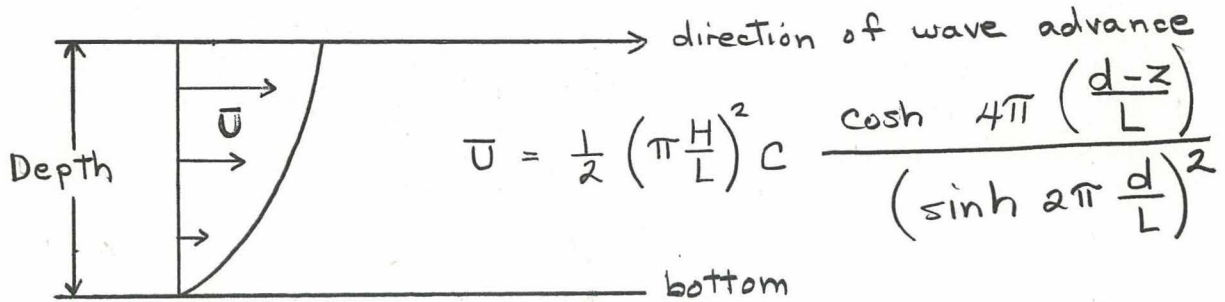 direction of wave advance
Depth
U̅
U̅ = 1/2 (π H/L)² C cosh 4π ((d-z)/L) / (sinh 2π d/L)²
bottom